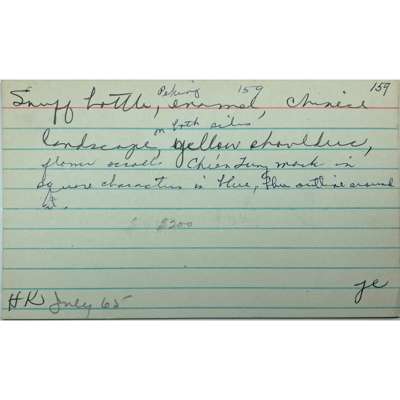 Peking 159 159
Snuff bottle, enamel, Chinese
on both sides
landscape, yellow shoulder,
flower scroll. Chien Lung mark in
square characters in blue, blue outline around
it.
$200
HK July 65 ye